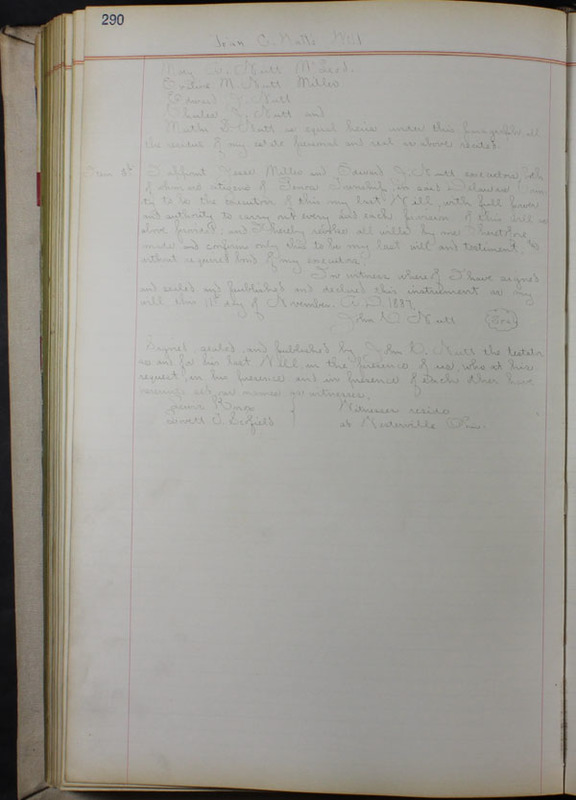 290
John C. Nutt's Will
Mary A. Nutt McLeod.
M. Nutt Miller
Edward J. Nutt
Charles Nutt and
Nutt as equal heirs under this paragraph all
the residue of my estate personal and real as above stated.
Item 8th I appoint Jesse Miller and Edward J. Nutt executors, both
of whom are citizens of Genoa Township in said Delaware Coun
ty to be the executors of this my last Will, with full power
and authority to carry out every and each provision of this Will as
above provided; and I hereby revoke all wills by me heretofore
made and confirm only this to be my last will and testament,
without required bond of my executors.
In witness whereof I have signed
and sealed and published and declared this instrument as my
will this 11th day of November. A.D. 1887.
John C. Nutt Seal
Signed, sealed, and published by John C. Nutt the testator
as and for his last Will, in the presence of us, who at his
request, in his presence and in presence of each other have
our names as witnesses.
Knox } Witnesses reside
at Westerville